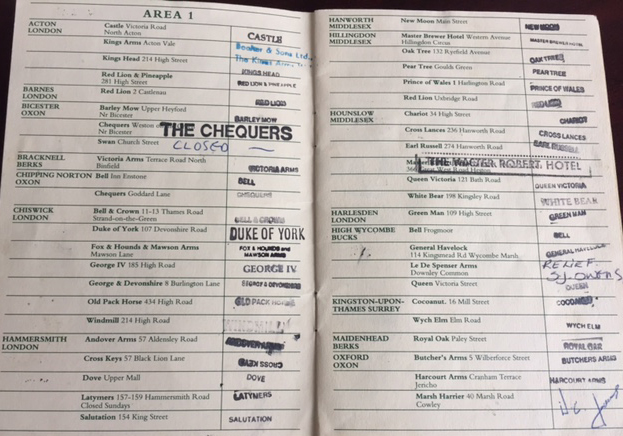 AREA 1
ACTON
LONDON
Castle Victoria Road
North Acton
CASTLE
Kings Arms Acton Vale
& Sons Ltd.
The Kings Arms
Kings Head 214 High Street
KINGS HEAD
Red Lion & Pineapple
281 High Street
RED LION & PINEAPPLE
BARNES
LONDON
Red Lion 2 Castlenau
RED LION
BICESTER
OXON
Barley Mow Upper Heyford
Nr Bicester
BARLEY MOW
Chequers Weston
Nr Bicester
THE CHEQUERS
Swan Church Street
CLOSED
BRACKNELL
BERKS
Victoria Arms Terrace Road North
Binfield
VICTORIA ARMS
CHIPPING NORTON
OXON
Bell Inn Enstone
BELL
Chequers Goddard Lane
CHEQUERS
CHISWICK
LONDON
Bell & Crown 11-13 Thames Road
Strand-on-the-Green
BELL & CROWN
Duke of York 107 Devonshire Road
DUKE OF YORK
Fox & Hounds & Mawson Arms
Mawson Lane
FOX & HOUNDS and
MAWSON ARMS
George IV 185 High Road
GEORGE IV
George & Devonshire 8 Burlington Lane
GEORGE & DEVONSHIRE
Old Pack Horse 434 High Road
OLD PACK HORSE
Windmill 214 High Road
WINDMILL
HAMMERSMITH
LONDON
Andover Arms 57 Aldensley Road
ANDOVER ARMS
Cross Keys 57 Black Lion Lane
CROSS KEYS
Dove Upper Mall
DOVE
Latymers 157-159 Hammersmith Road
Closed Sundays
LATYMERS
Salutation 154 King Street
SALUTATION
HANWORTH
MIDDLESEX
New Moon Main Street
NEW MOON
HILLINGDON
MIDDLESEX
Master Brewer Hotel Western Avenue
Hillingdon Circus
MASTER BREWER HOTEL
Oak Tree 132 Ryefield Avenue
OAK TREE
Pear Tree Goulds Green
PEAR TREE
Prince of Wales 1 Harlington Road
PRINCE OF WALES
Red Lion Uxbridge Road
HOUNSLOW
MIDDLESEX
Chariot 34 High Street
CHARIOT
Cross Lances 236 Hanworth Road
CROSS LANCES
Earl Russell 274 Hanworth Road
EARL RUSSELL
THE MASTER ROBERT HOTEL
366 Great West Road Heston
Queen Victoria 121 Bath Road
QUEEN VICTORIA
White Bear 198 Kingsley Road
WHITE BEAR
HARLESDEN
LONDON
Green Man 109 High Street
GREEN MAN
HIGH WYCOMBE
BUCKS
Bell Frogmoor
BELL
General Havelock
114 Kingsmead Rd Wycombe Marsh
GENERAL HAVELOCK
Le De Spenser Arms
Downley Common
RELIEF
Queen Victoria Street
QUEEN
KINGSTON-UPON-
THAMES SURREY
Cocoanut. 16 Mill Street
COCOANUT
Wych Elm Elm Road
WYCH ELM
MAIDENHEAD
BERKS
Royal Oak Paley Street
ROYAL OAK
OXFORD
OXON
Butcher's Arms 5 Wilberforce Street
BUTCHERS ARMS
Harcourt Arms Cranham Terrace
Jericho
HARCOURT ARMS
Marsh Harrier 40 Marsh Road
Cowley